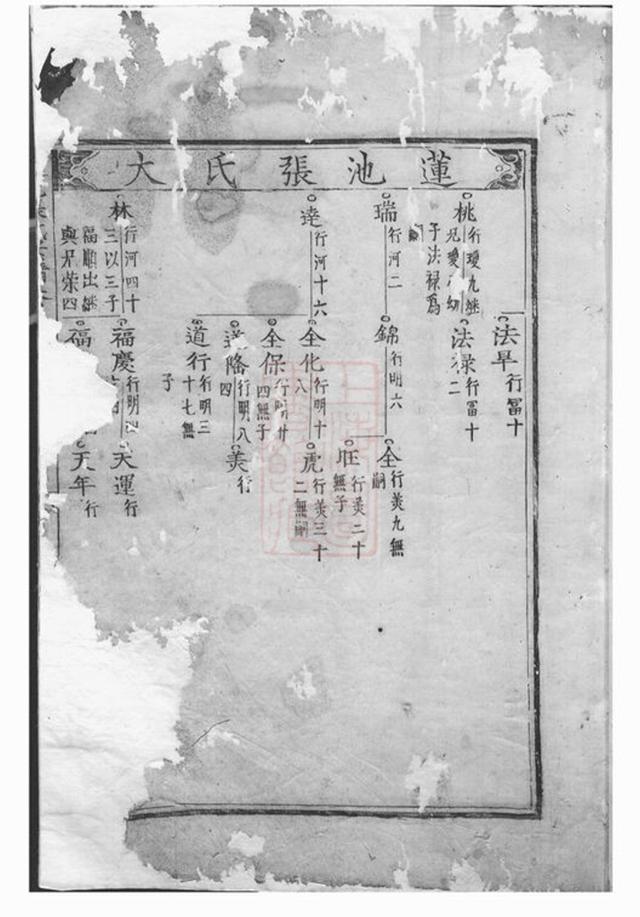 蓮池張氏大
法早 行冨十
桃 行瓊九
子法祿爲
法祿 行冨十二
瑞 行河二
錦 行明六
全 行美九無嗣
旺 行美二十無子
達 行河十六
全化 行明十八
虎 行美三十二無嗣
全保 行明廿四無子
道隆 行明八四
美 行
道行 行明三十七無子
林 行河四十三以三子福順出継與兄榮四
福慶 行明
天運 行
福
天年 行